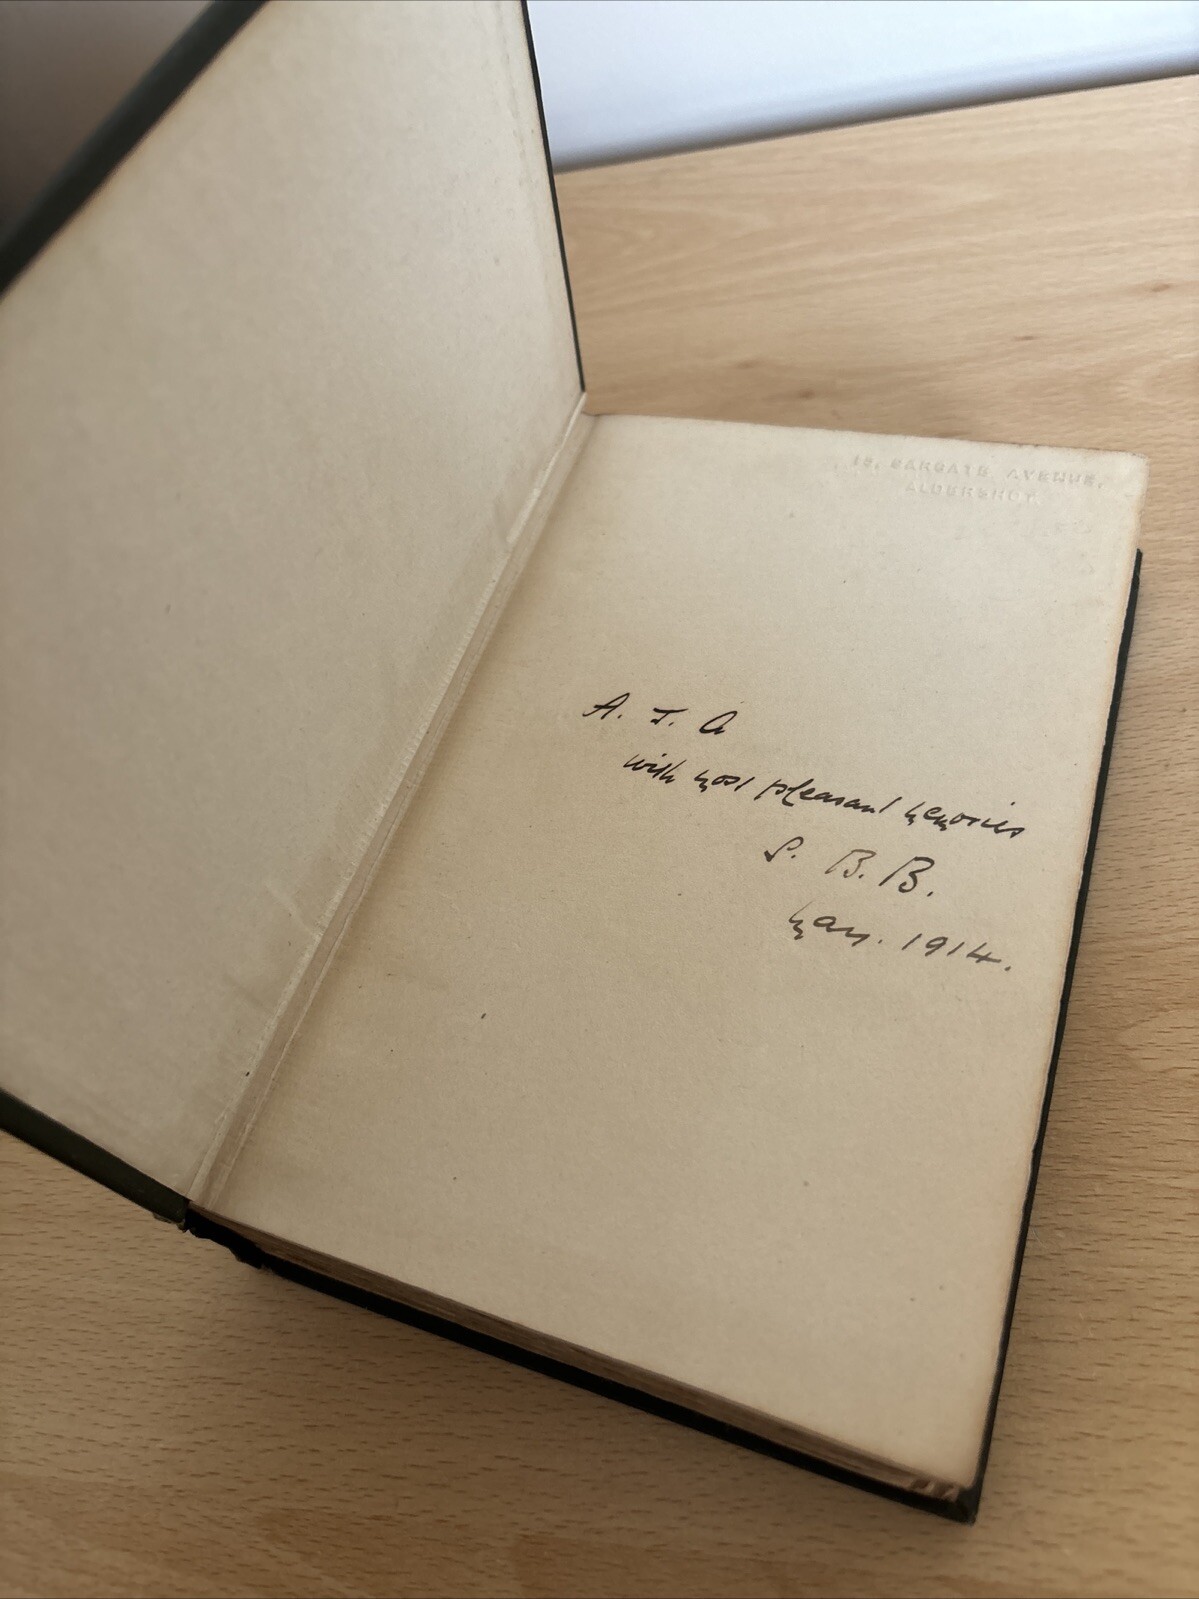 15, CARGATE AVENUE,
ALDERSHOT.
A. J. A
with most pleasant memories
S. B. B.
May. 1914.